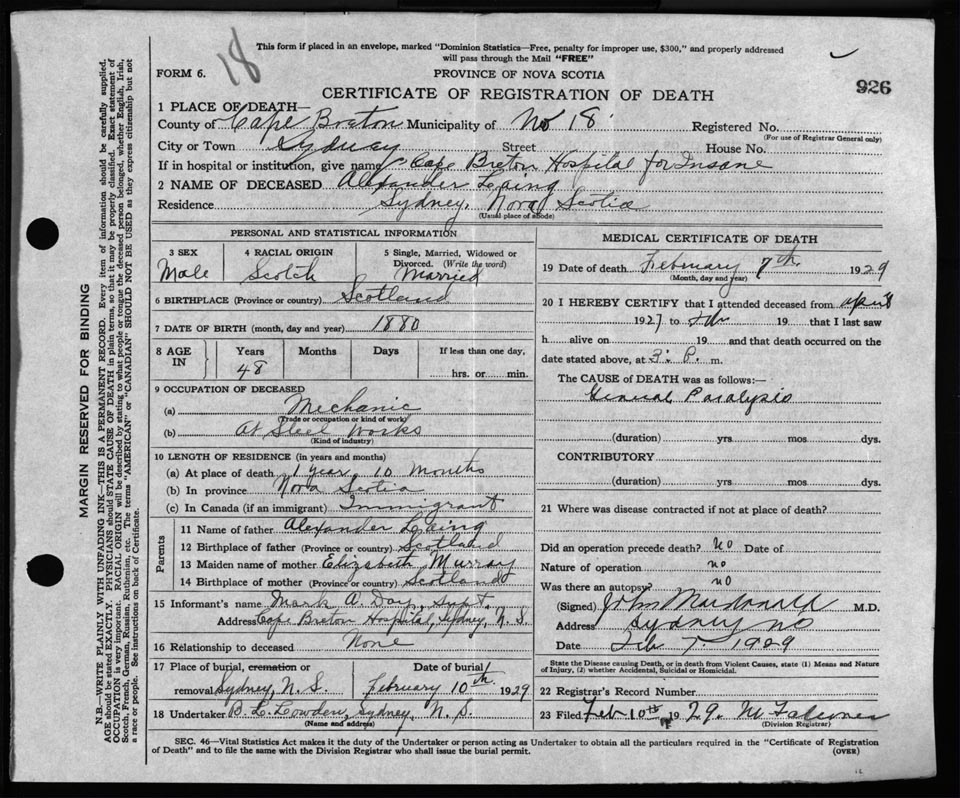 18
This form if placed in an envelope, marked "Dominion Statistics—Free, penalty for improper use, $300," and properly addressed
will pass through the Mail "FREE"
FORM 6.
PROVINCE OF NOVA SCOTIA
926
CERTIFICATE OF REGISTRATION OF DEATH
1 PLACE OF DEATH—
County of Cape Breton Municipality of No 18 Registered No.
(For use of Registrar General only)
City or Town Sydney Street House No.
If in hospital or institution, give name Cape Breton Hospital for Insane
2 NAME OF DECEASED Alexander Laing
Residence Sydney, Nova Scotia
(Usual place of abode)
PERSONAL AND STATISTICAL INFORMATION
3 SEX 4 RACIAL ORIGIN 5 Single, Married, Widowed or
Divorced. (Write the word)
Male Scotch Married
6 BIRTHPLACE (Province or country) Scotland
7 DATE OF BIRTH (month, day and year) 1880
8 AGE IN Years Months Days If less than one day,
48 hrs. or min.
9 OCCUPATION OF DECEASED
(a) Mechanic
(Trade or occupation or kind of work)
(b) At Steel Works
(Kind of industry)
10 LENGTH OF RESIDENCE (in years and months)
(a) At place of death 1 year 10 months
(b) In province Nova Scotia
(c) In Canada (if an immigrant) Immigrant
Parents
11 Name of father Alexander Laing
12 Birthplace of father (Province or country) Scotland
13 Maiden name of mother Elizabeth Murray
14 Birthplace of mother (Province or country) Scotland
15 Informant's name Mark A. Day, Supt.
Address Cape Breton Hospital, Sydney, N. S.
16 Relationship to deceased None
17 Place of burial, cremation or Date of burial
removal Sydney, N. S. February 10th 1929
18 Undertaker B. L. Lowden, Sydney, N. S.
(Name and address)
MEDICAL CERTIFICATE OF DEATH
19 Date of death February 7th 1929
(Month, day and year)
20 I HEREBY CERTIFY that I attended deceased from April
1927 to Feb 19 that I last saw
h alive on 19 and that death occurred on the
date stated above, at 3: P. m.
The CAUSE OF DEATH was as follows:—
General Paralysis
(duration) yrs mos dys.
CONTRIBUTORY
(duration) yrs mos dys.
21 Where was disease contracted if not at place of death?
Did an operation precede death? no Date of
Nature of operation no
Was there an autopsy? no
(Signed) John Macdonald M.D.
Address Sydney
Date Feb 7 1929
State the Disease causing Death, or in death from Violent Causes, state (1) Means and Nature
of Injury, (2) whether Accidental, Suicidal or Homicidal.
22 Registrar's Record Number
23 Filed Feb 10th 1929.
(Division Registrar)
SEC. 46—Vital Statistics Act makes it the duty of the Undertaker or person acting as Undertaker to obtain all the particulars required in the "Certificate of Registration
of Death" and to file the same with the Division Registrar who shall issue the burial permit.
MARGIN RESERVED FOR BINDING
N.B.—WRITE PLAINLY WITH UNFADING INK—THIS IS A PERMANENT RECORD. Every item of information should be carefully supplied.
AGE should be stated EXACTLY. PHYSICIANS should STATE CAUSE OF DEATH in plain terms, so that it may be properly classified. Exact statement of
OCCUPATION is very important. RACIAL ORIGIN will be described by stating to what people or tongue the deceased person belonged, whether English, Irish,
Scotch, French, German, Russian, Ruthenian, etc. The terms "AMERICAN" or "CANADIAN" SHOULD NOT BE USED as they express citizenship but not
a race or people. See instructions on back of Certificate.